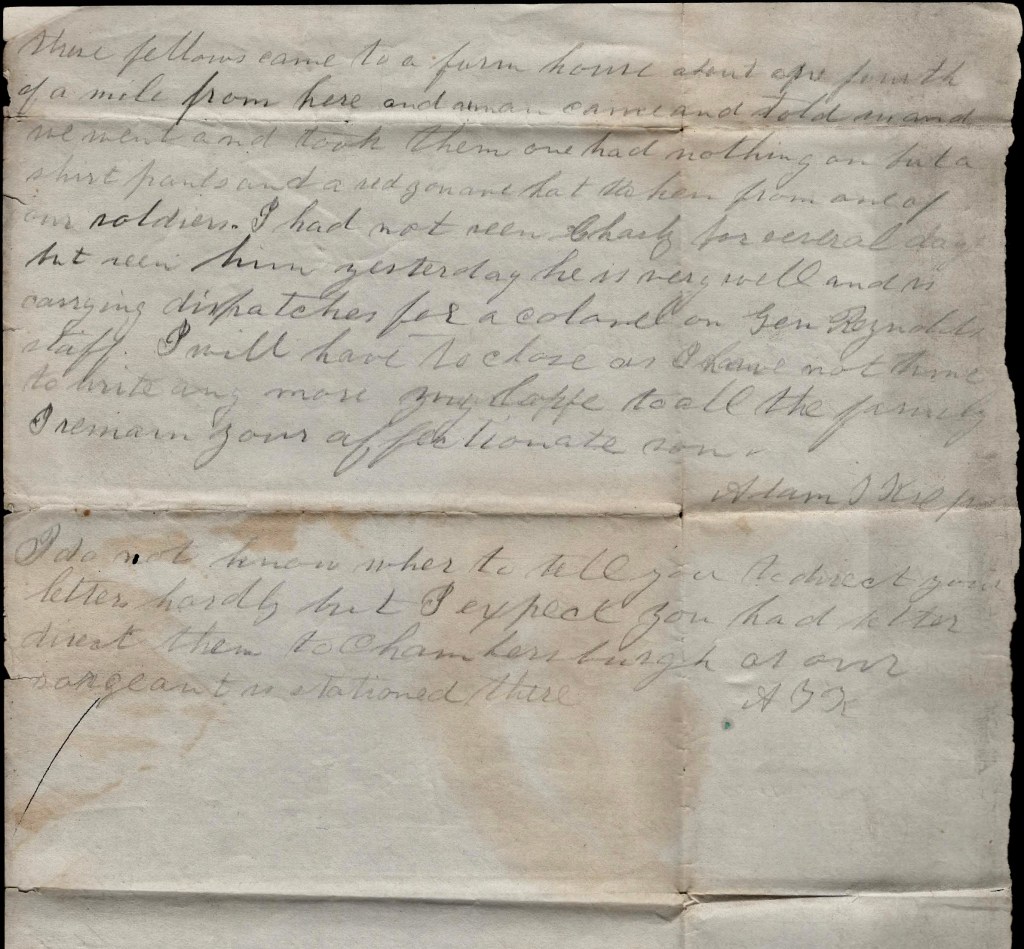 these fellows came to a farm house about one fourth
of a mile from here and a man came and told us and
we went and took them one had nothing on but a
shirt pants and a red zouave hat taken from one of
our soldiers. I had not seen Charly for several days
but seen him yesterday he is very well and is
carrying dispatches for a colonel on Gen Reynolds
staff. I will have to close as I have not time
to write any more my love to all the family
I remain your affectionate son.
Adam
I do not know wher to tell you to direct your
letters hardly but I expect you had better
direct them to Chambersburgh as our
sargeant is stationed there